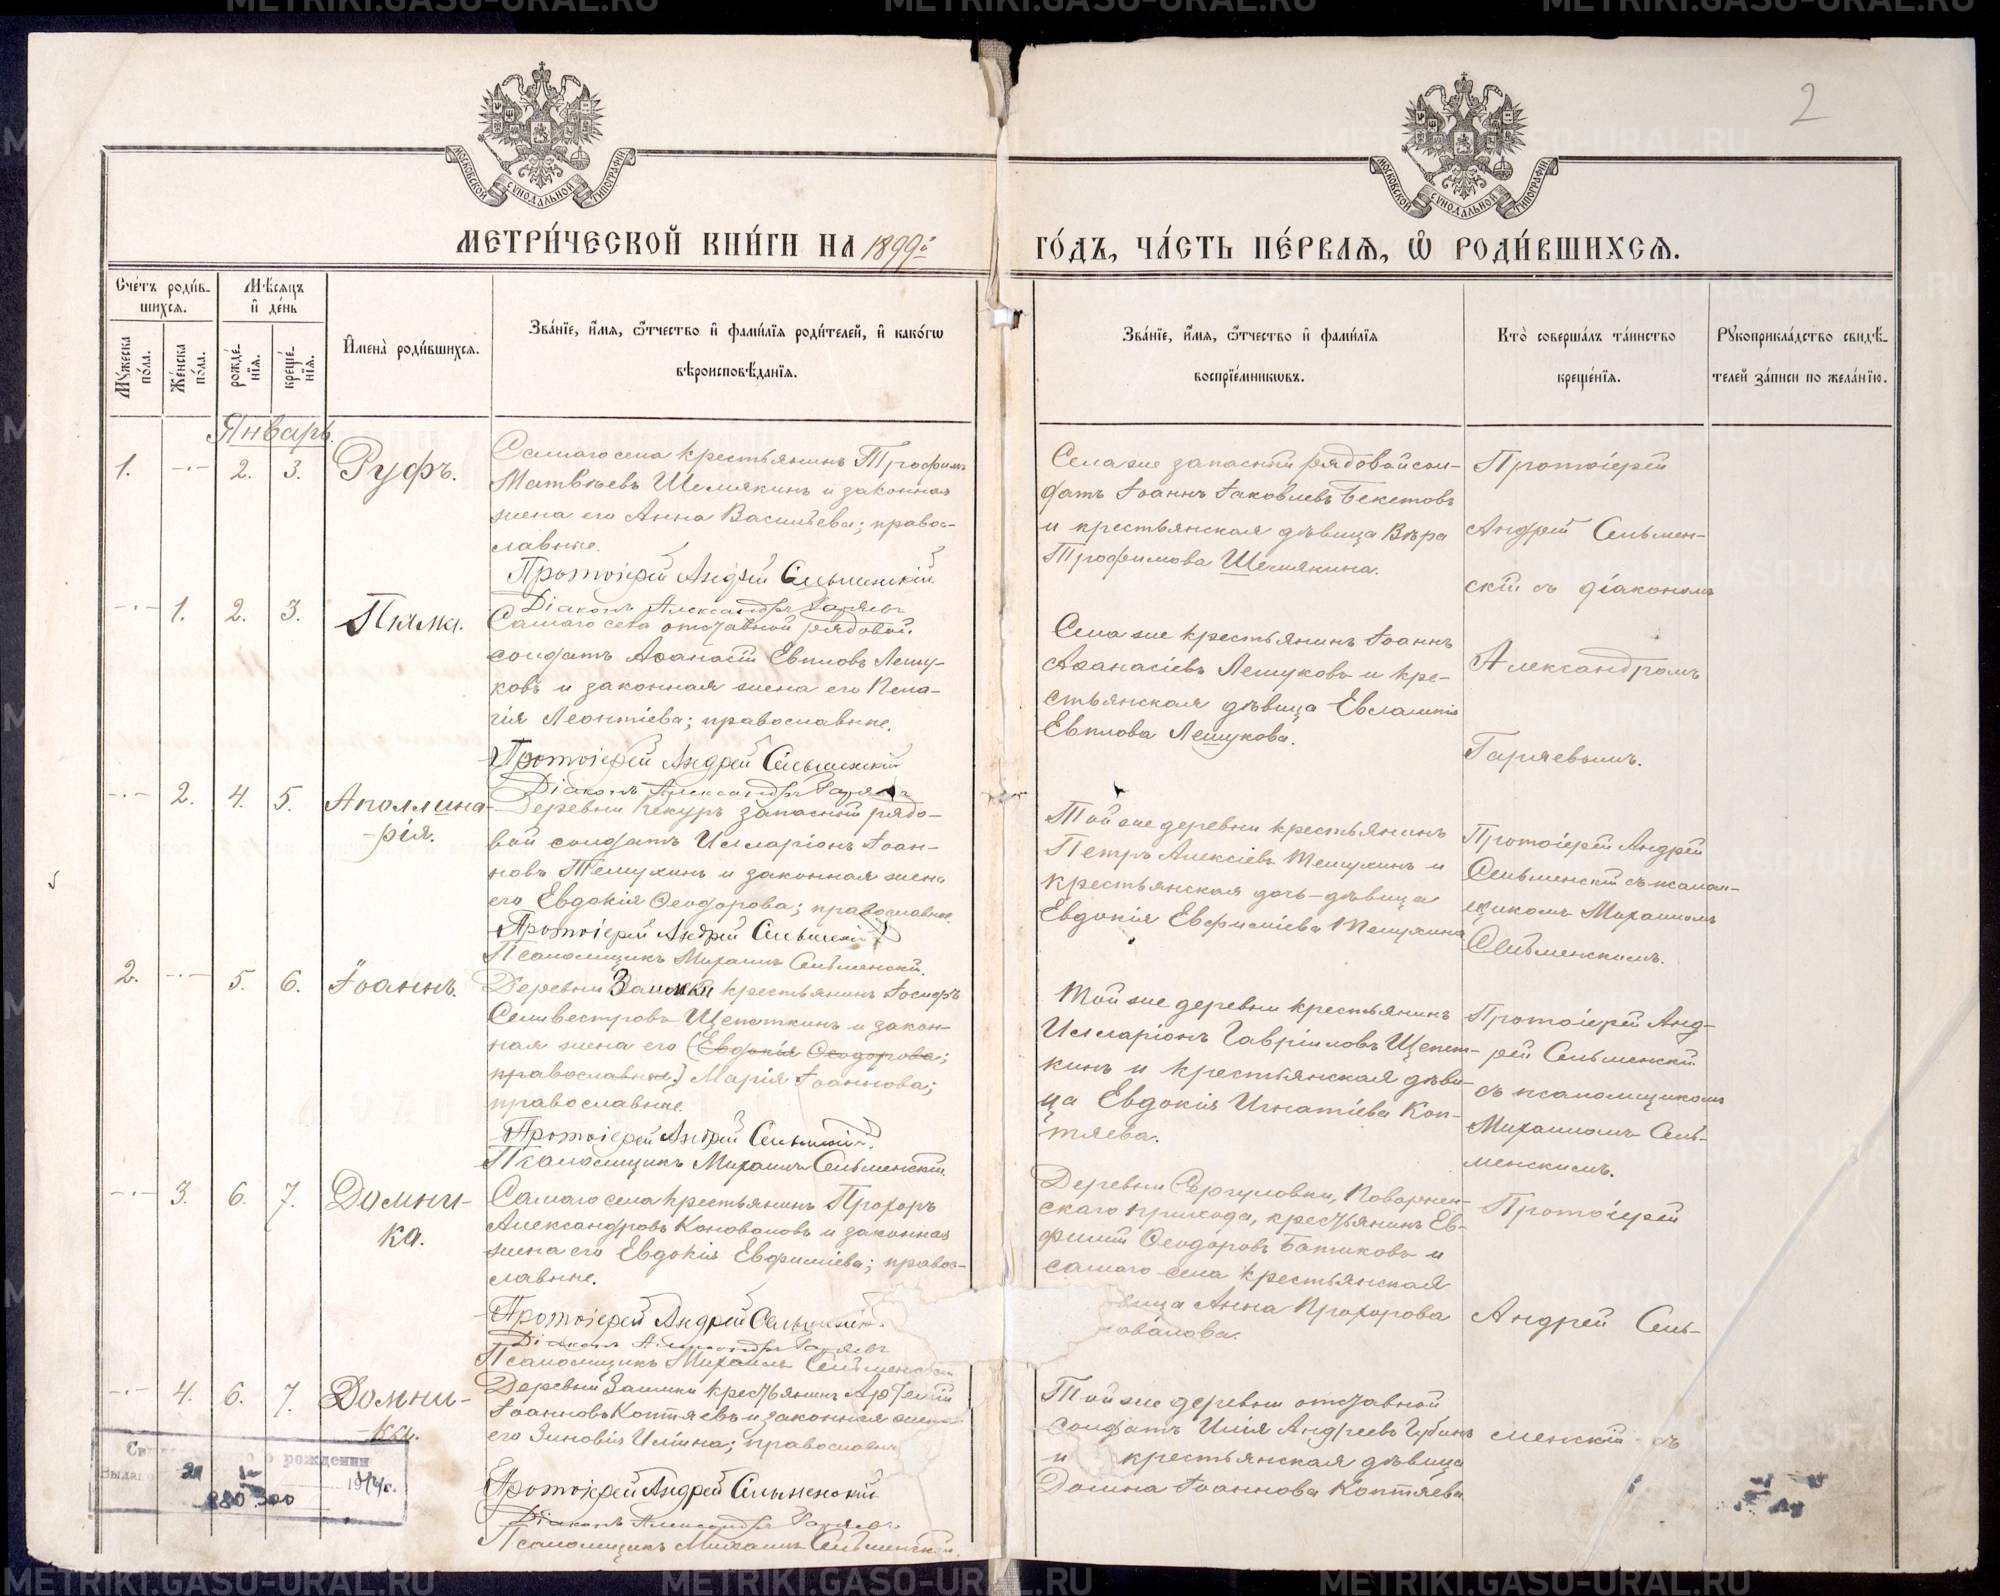 МЕТРИ́ЧЕСКОЙ КНИ́ГИ НА 1899й
ГО́ДЪ, ЧА́СТЬ ПЕ́РВАѦ, Ѡ РОДИ́ВШИХСѦ.
МОСКОВСКОЙ СѴНОДАЛЬНОЙ ТИПОГРАФІИ
МОСКОВСКОЙ СѴНОДАЛЬНОЙ ТИПОГРАФІИ
2
Сче́тъ роди́в-
шихсѧ.
Мꙋ́жеска по́ла.
Же́нска по́ла.
Мѣ́сѧцъ
и҆ де́нь
рожде́-
нїѧ.
креще́-
нїѧ.
И҆мена̀ роди́вшихсѧ.
Зва́нїе, и҆́мѧ, ѻ҆́тчество и҆ фами́лїѧ роди́телей, и҆ како́гѡ
вѣроисповѣ́данїѧ.
Зва́нїе, и҆́мѧ, ѻ҆́тчество и҆ фами́лїѧ
воспрїе́мникѡвъ.
Кто̀ соверша́лъ та́инство
креще́нїѧ.
Рꙋкоприкла́дство свидѣ́-
телей за́писи по жела́нїю.
Январь.
1. -·- 2. 3. Руфъ.
Самаго села крестьянинъ Трофимъ
Матвѣевъ Шемякинъ и законная
жена его Анна Васильева; право-
славные.
Протоіерей Андрей Сельменскій
Діаконъ Александръ Гаряевъ
Села же запасный рядовой сол-
датъ Іоаннъ Іаковлевъ Бекетовъ
и крестьянская дѣвица Вѣра
Трофимова Шемякина.
Протоіерей
Андрей Сельмен-
скій съ діакономъ
Александромъ
Гаряевымъ.
-·- 1. 2. 3.
Самаго села отставной рядовой
солдатъ Аѳанасій Евпловъ Лешу-
ковъ и законная жена его Пела-
гія Леонтіева; православные.
Протоіерей Андрей Сельменскій
Діаконъ Александръ Гаряевъ
Села же крестьянинъ Іоаннъ
Аѳанасіевъ Лешуковъ и кре-
стьянская дѣвица
Евплова Лешукова.
-·- 2. 4. 5. Аполлина-
рія.
Деревни запасный рядо-
вой солдатъ Илларіонъ Іоан-
новъ и законная жена
его Евдокія Ѳеодорова; православные.
Протоіерей Андрей Сельменскій
Псаломщикъ Михаилъ Сельменскій.
Той же деревни крестьянинъ
Петръ Алексіевъ и
крестьянская дочь-дѣвица
Евдокія Евфиміева
Протоіерей Андрей
Сельменскій съ псалом-
щикомъ Михаиломъ
Сельменскимъ.
2. -·- 5. 6. Іоаннъ.
Деревни Заимки крестьянинъ Іосифъ
Селивестровъ Щепоткинъ и закон-
ная жена его (Евдокія Ѳеодорова;
православные) Марія Іоаннова;
православные.
Протоіерей Андрей Сельменскій
Псаломщикъ Михаилъ Сельменскій.
Той же деревни крестьянинъ
Илларіонъ Гавріиловъ Щепот-
кинъ и крестьянская дѣви-
ца Евдокія Игнатіева Коп-
тяева.
Протоіерей Анд-
рей Сельменскій
съ псаломщикомъ
Михаиломъ Сель-
менскимъ.
-·- 3. 6. 7. Домни-
ка.
Самаго села крестьянинъ Прохоръ
Александровъ Коноваловъ и законная
жена его Евдокія Евфиміева; право-
славные.
Протоіерей Андрей Сельменскій.
Діаконъ Александръ Гаряевъ
Псаломщикъ Михаилъ Сельменскій
Деревни
скаго прихода, крестьянинъ Ев-
фимій Ѳеодоровъ Батиковъ и
самаго села крестьянская
вица Анна Прохорова
овалова.
Протоіерей
Андрей Сель-
-·- 4. 6. 7. Домни-
ка.
Деревни Заимки крестьянинъ Артемій
Іоанновъ Коптяевъ и законная жена
его Зиновія Иліина; православные
Протоіерей Андрей Сельменскій
Діаконъ Александръ Гаряевъ
Псаломщикъ Михаилъ Сельменскій.
Той же деревни отставной
солдатъ Илія Андреевъ Губинъ
и крестьянская дѣвица
Домна Іоаннова Коптяева
менскій съ
о рождении
Выдано
METRIKI.GASO-URAL.RU